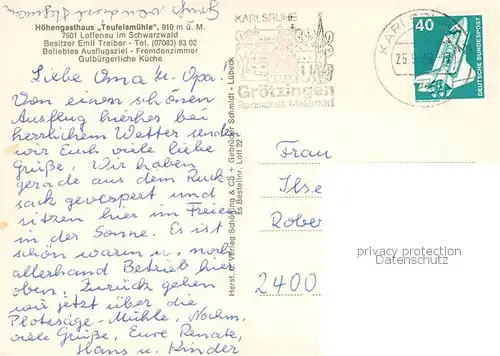 Höhengasthaus „Teufelsmühle", 910 m ü. M.
7501 Loffenau im Schwarzwald
Besitzer Emil Treiber - Tel. (07083) 83 02
Beliebtes Ausflugsziel - Fremdenzimmer
Gutbürgerliche Küche
Liebe Oma u. Opa.
Von einem schönen
Ausflug hierher bei
herrlichem Wetter senden
wir Euch viele liebe
Grüße. Wir haben
gerade aus dem Ruck
sack gevespert und
sitzen hier im Freien
in der Sonne. Es ist
schön warm u. noch
allerhand Betrieb hier
oben. Zurück gehen
wir jetzt über die
Plotzsäge-Mühle. Nochm.
viele Grüße, Eure Renate,
Hans u. Kinder
Herst. u. Verlag Schöning & Co + Gebrüder Schmidt - Lübeck
Bestellnr. Loff 22
KARLSRUHE
Grötzingen
Badisches Malerdorf
KARLS
25.9
40
DEUTSCHE BUNDESPOST
Frau
Ilse
Rober
2400
privacy protection
Datenschutz